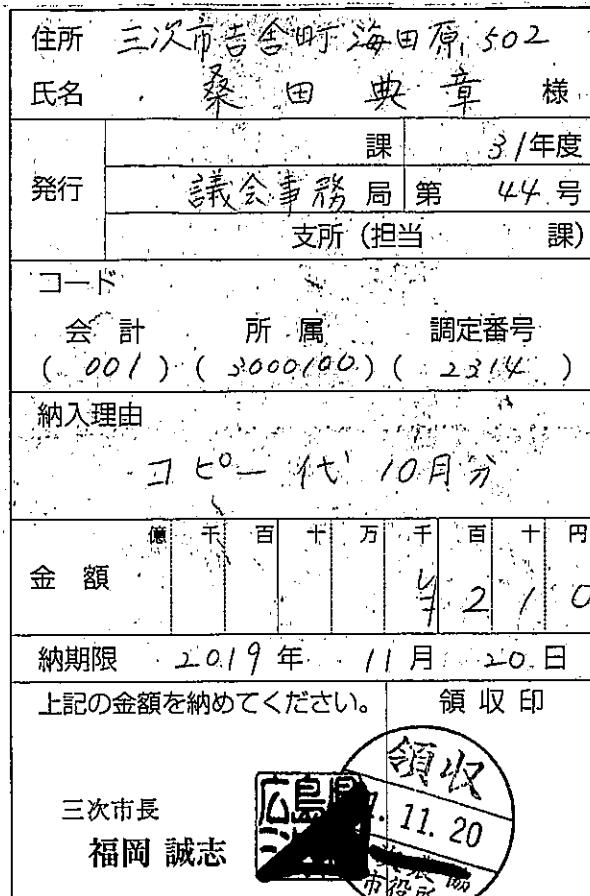 住所 三次市吉舎町海田原502
氏名 桑田典章 様
発行
課 31年度
議会事務局 第 44号
支所(担当 課)
コード
会計 所属 調定番号
(001) (3000100) (2314)
納入理由
コピー代 10月分
億 千 百 十 万 千 百 十 円
金額 ¥210
納期限 2019年 11月 20日
上記の金額を納めてください。
領収印
三次市長
福岡 誠志
広島県
領収
11.20
市役所